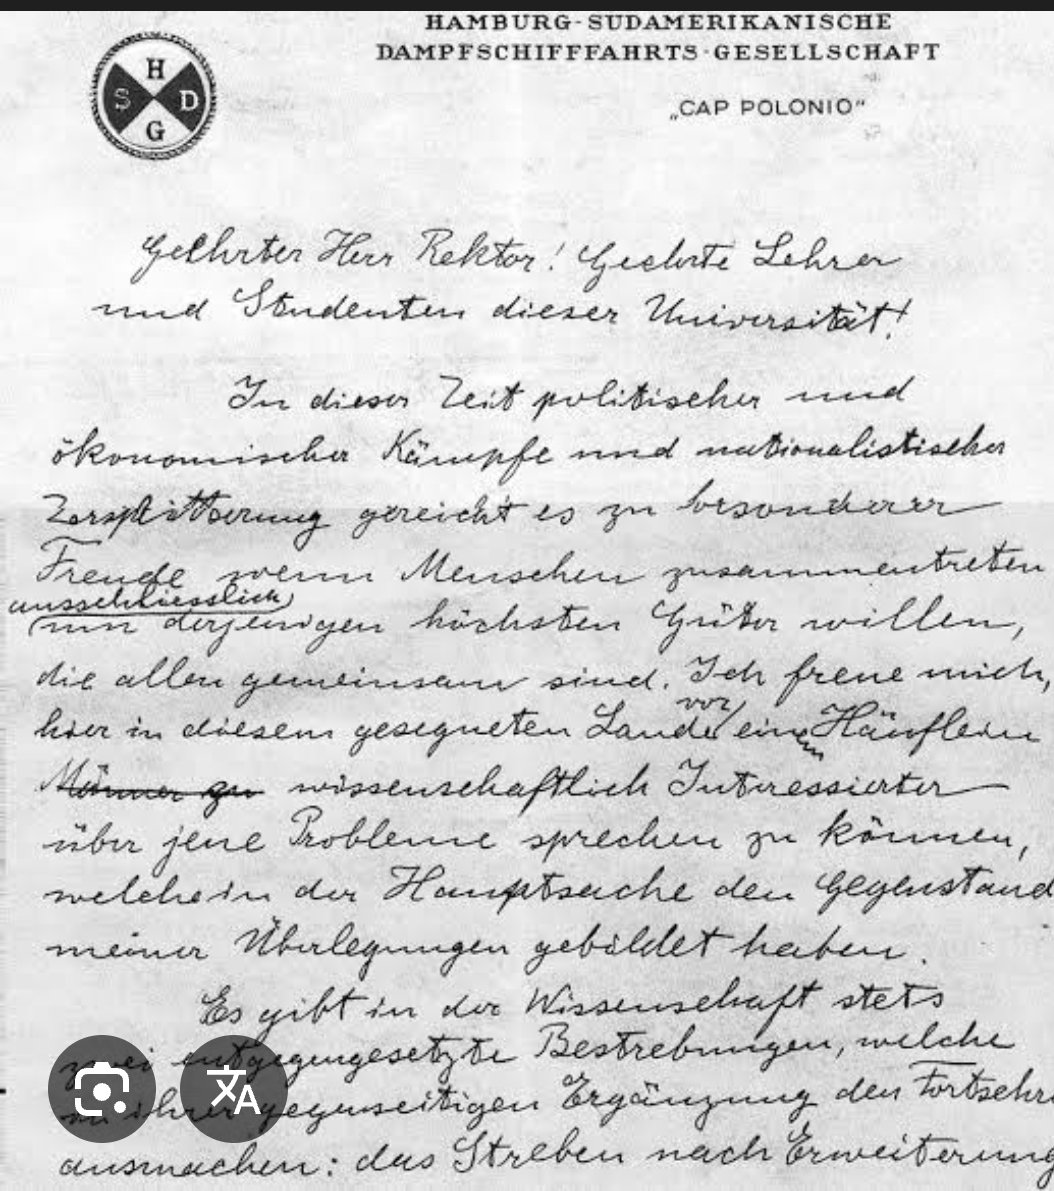 HAMBURG-SÜDAMERIKANISCHE
DAMPFSCHIFFFAHRTS-GESELLSCHAFT
H
S D
G
„CAP POLONIO"
Geehrter Herr Rektor! Geehrte Lehrer
und Studenten dieser Universität!
In dieser Zeit politischer und
ökonomischer Kämpfe und nationalistischer
Zersplitterung gereicht es zu besonderer
Freude wenn Menschen zusammentreten
ausschliesslich
um derjenigen höchsten Güter willen,
die allen gemeinsam sind. Ich freue mich,
vor
hier in diesem gesegneten Lande einem Häuflein
wissenschaftlich Interessierter
über jene Probleme sprechen zu können,
welche in der Hauptsache den Gegenstand
meiner Überlegungen gebildet haben.
Es gibt in der Wissenschaft stets
zwei entgegengesetzte Bestrebungen, welche
in ihrer gegenseitigen Ergänzung den Fortschri
ausmachen: das Streben nach Erweiterung